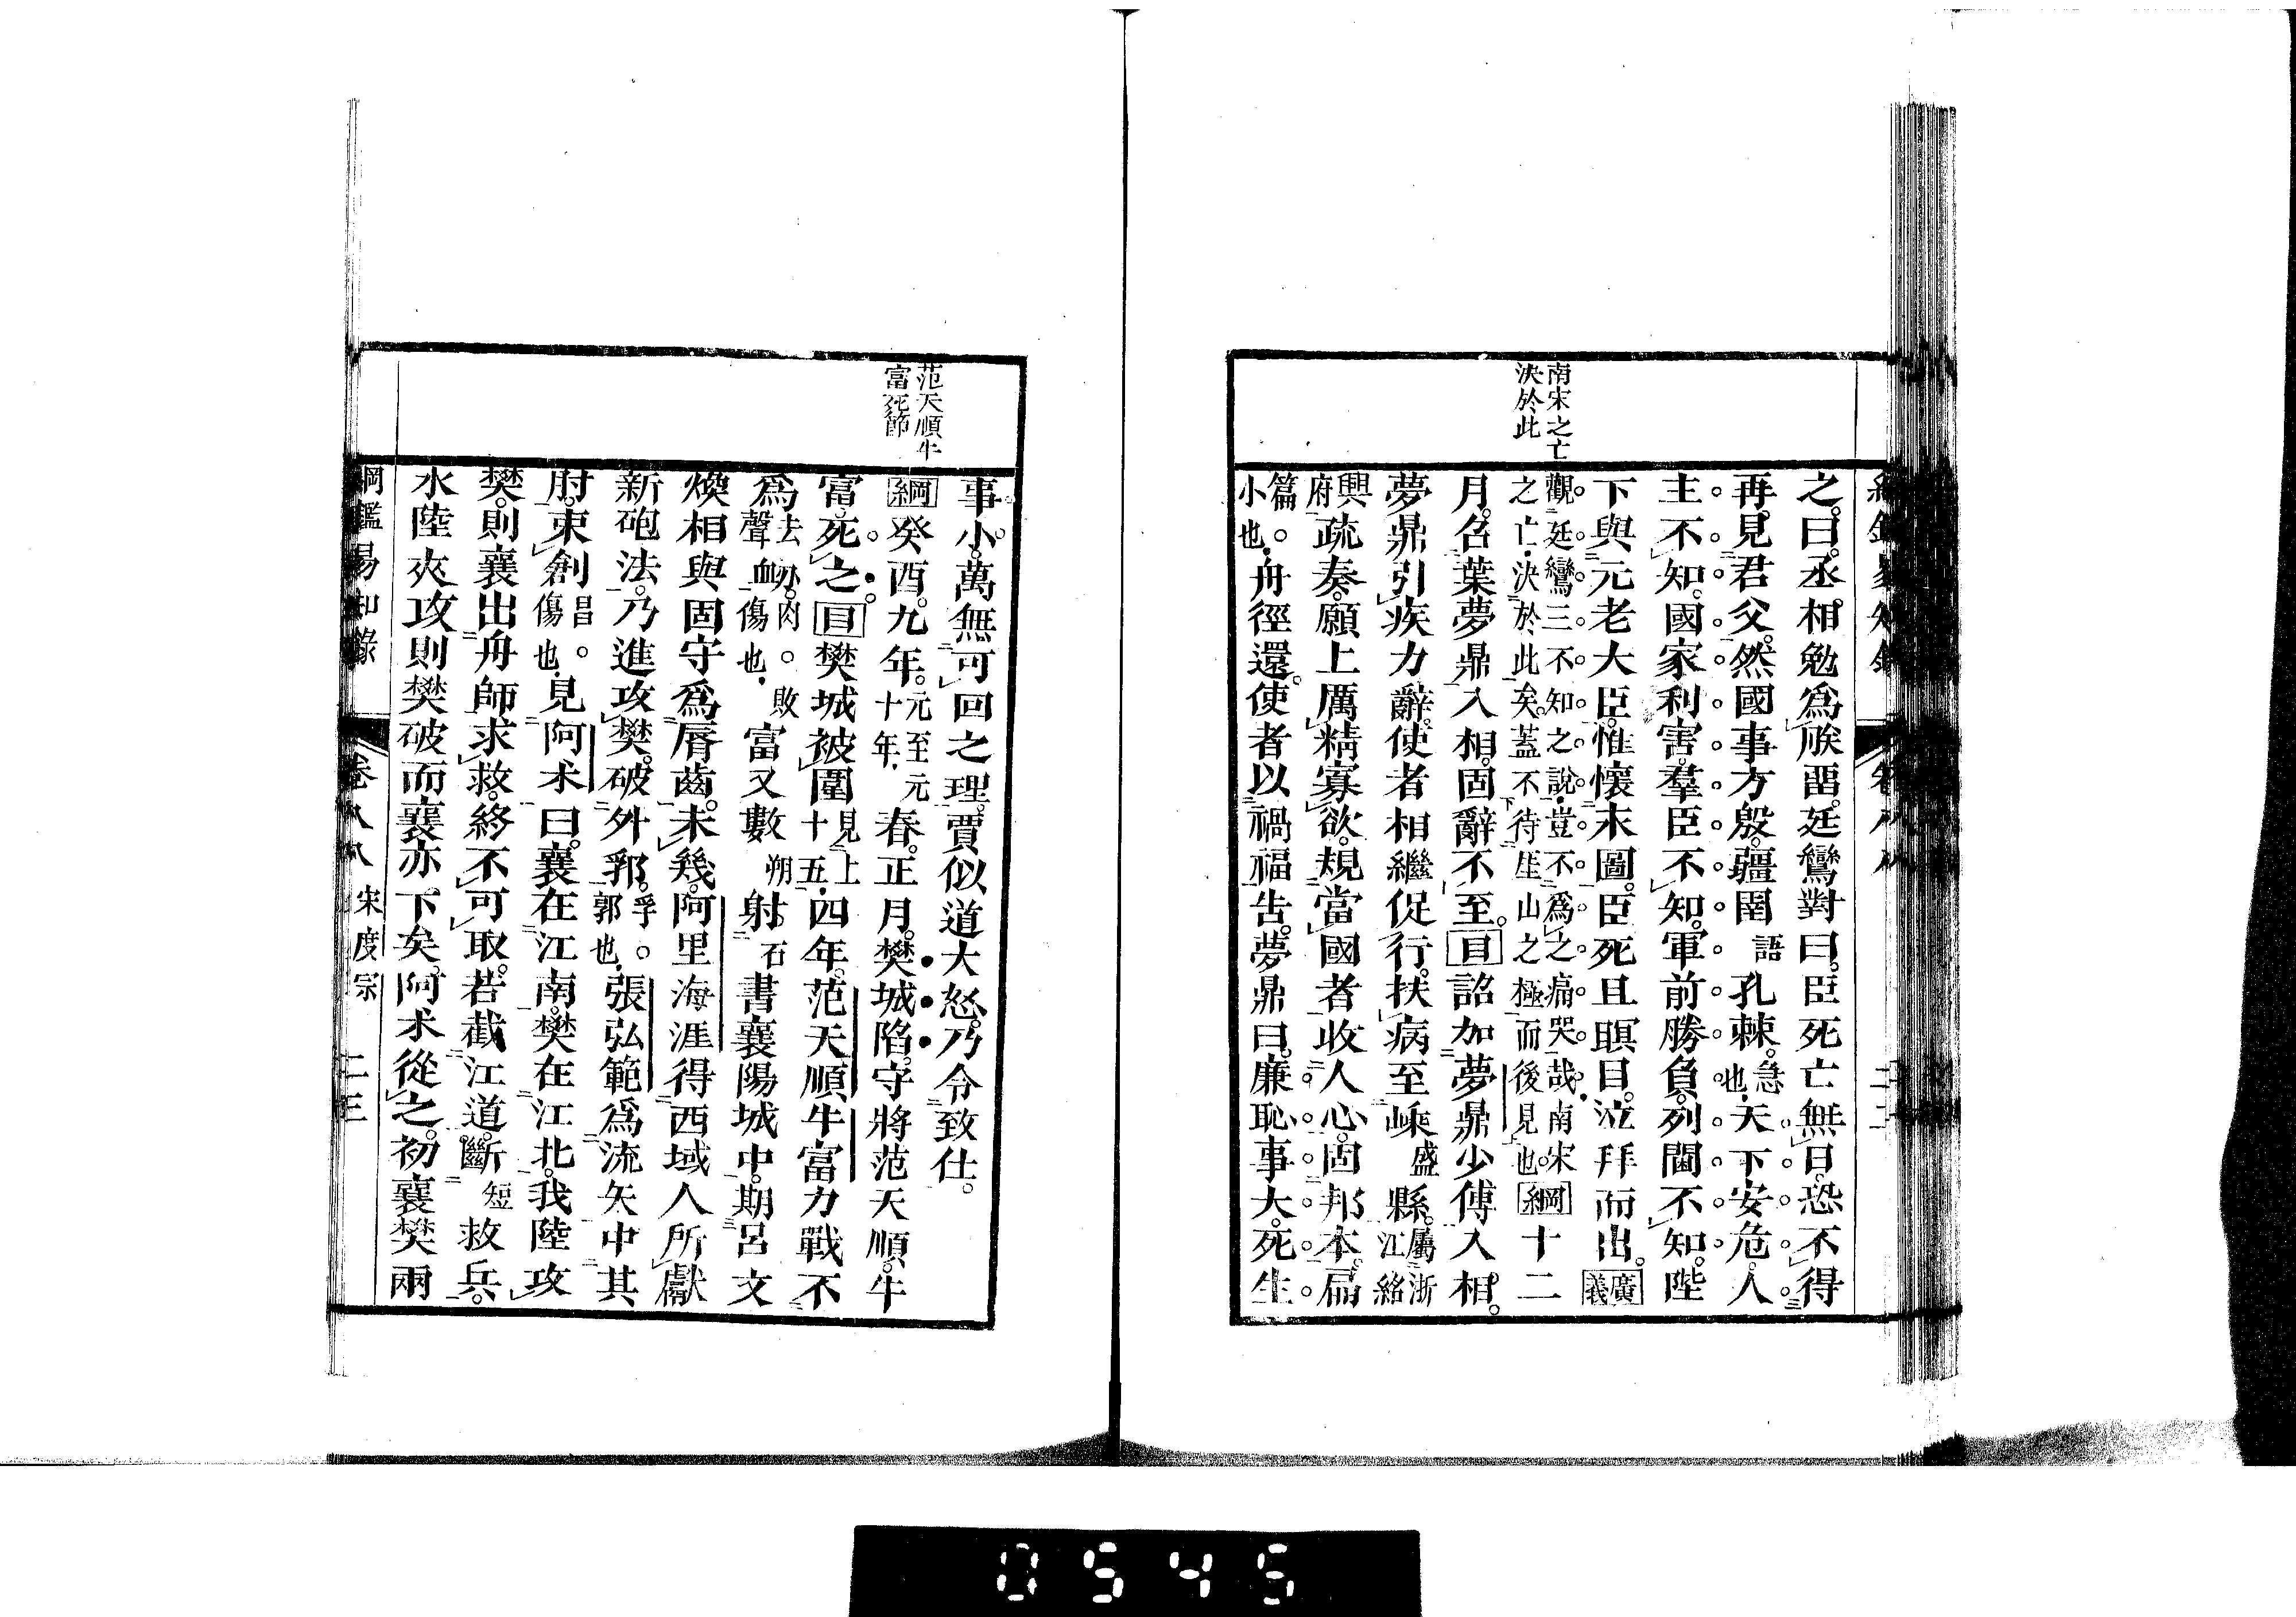 南宋之亡
決於此
之。曰。丞相勉爲朕畱。廷鸞對曰。臣死亡無日。恐不得
再見君父。然國事方殷。疆圉語孔棘。急也。天下安危。人
主不知。國家利害。羣臣不知。軍前勝負。列閫不知。陛
下與元老大臣。惟懷末圖。臣死且瞑目。泣拜而出。廣義
觀廷鸞三不知之說。豈不爲之痛哭哉。南宋
之亡。決於此矣。蓋不待厓山之極而後見也。綱十二
月。召葉夢鼎入相。固辭不至。目詔加夢鼎少傅入相。
夢鼎引疾力辭。使者相繼促行。扶病至嵊盛縣。屬浙江紹
興府疏奏。願上厲精寡欲。規當國者收人心。固邦本。扁
篇。小也。舟徑還。使者以禍福告。夢鼎曰。廉恥事大。死生
范天順牛
富死節
事小。萬無可回之理。賈似道大怒。乃令致仕。
綱癸酉。九年。元至元十年。春。正月。樊城陷。守將范天順。牛
富。死之。目樊城被圍見上十五。四年。范天順牛富力戰不
爲去聲衂。肉。血傷也。敗富又數朔射石書襄陽城中。期呂文
煥相與固守爲脣齒。未幾。阿里海涯得西域人所獻
新砲法。乃進攻樊。破外郛。孚。郭也。張弘範爲流矢中其
肘。束創昌。傷也。見阿朮曰。襄在江南。樊在江北。我陸攻
樊。則襄出舟師求救。終不可取。若截江道。斷短救兵。
水陸夾攻則樊破而襄亦下矣。阿朮從之。初襄樊兩
綱鑑易知錄 卷八八 宋度宗 二三
0545